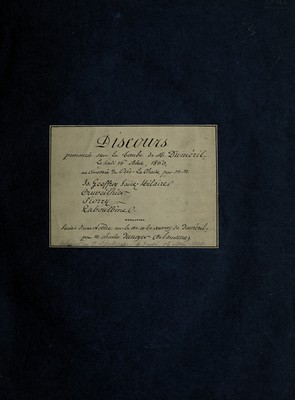 Discours
prononcés sur la tombe de M. Duméril,
Le lundi 16 Août, 1860,
au Cimetière du Père La Chaise par M.M.
Is. Geoffroy Saint-Hilaire
Cruveilhier
Piorry
Laboulbène.
Suivis d'une Notice sur la vie et les œuvres de Duméril,
par M. Charles Dunoyer